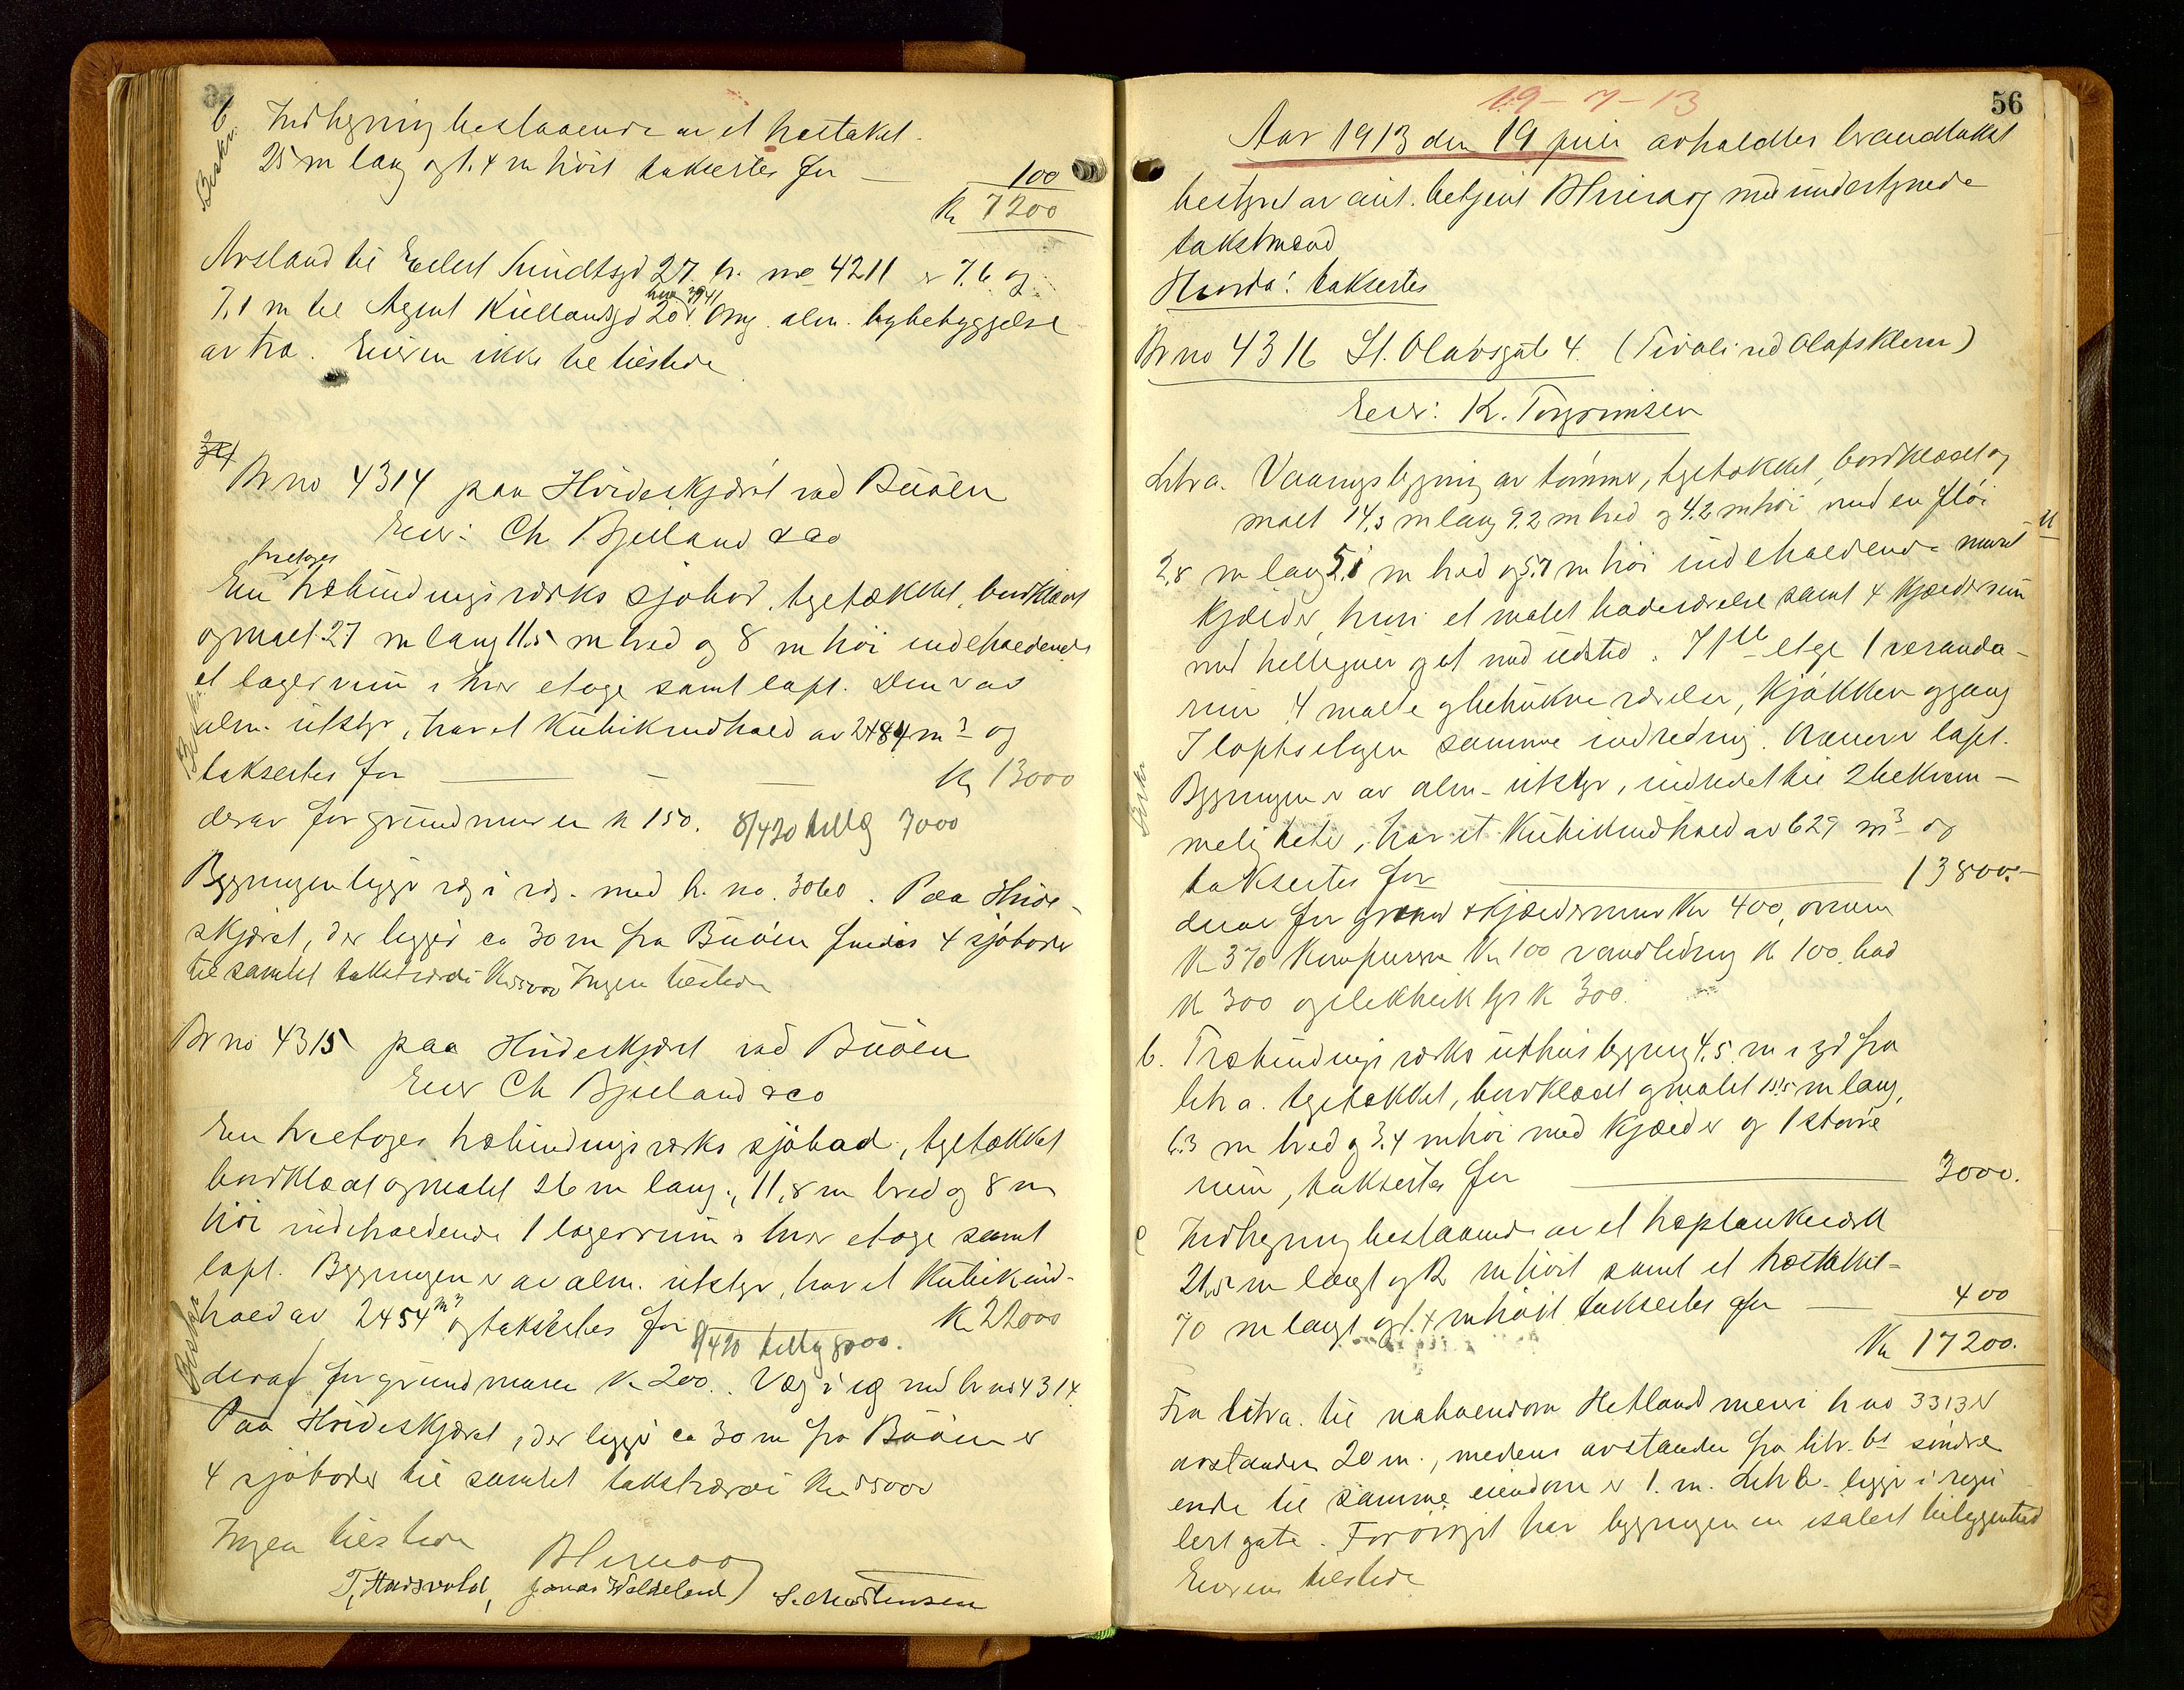 b. Indhegning bestaaende av et træstaket
Beskr.
25 m lang og 1.4 m höit taksertes for — 100
Kr 7200
Avstand til Eilert Sundtsgd 27. br. no 4211 er 7.6 og
7,1 m til Agent Kiellandsgd 20 br no 3941 Omg. alm. bybebyggelse
av træ. Eieren ikke til tilstede
Br no 4314 paa Hvideskjæret ved Buöen
Eier: Ch Bjelland & Co
En toetages træbindingsværks sjöbod, tegltækket, bordklædt
og malt 27 m lang 11.5 m bred og 8 m höi indeholdende
et lagerrum i hver etage samt loft. Den er av
alm. utstyr, har et Kubikindhold av 2484 m3 og
taksertes for — Kr 13000
derav for grundmuren Kr 150. 8/4 20 tillæg 7000
Bygningen ligger væg i væg med br. no. 3060. Paa Hvide-
skjæret, der ligger ca 30 m fra Buöen findes 4 sjöboder
til samlet takstværdi Kr 55000 Ingen tilstede
Br no 4315 paa Hvideskjæret ved Buöen
Eier Ch Bjelland & Co
En toetages træbindingsværks sjöbod, tegltækket
bordklædt og malet 26 m lang, 11,8 m bred og 8 m
höi indeholdende 1 lagerrum i hver etage samt
loft. Bygningen er av alm. utstyr, har et Kubikind-
hold av 2454 m3 og taksertes for Kr 22000
8/4 20 tillæg 8000.
Beskr
derav for grundmuren Kr 200. Væg i væg med br no 4314.
Paa Hvideskjæret, der ligger ca 30 m fra Buöen er
4 sjöboder til samlet takstværdi Kr 55000
Ingen tilstede
T. Haisvold, Jonas Waldeland S. Mortensen
56
19-7-13
Aar 1913 den 19 juli avholdtes brandtakst
bestyret av med undertegnede
takstmænd
Hvorda: taksertes
Br no 4316 St. Olavsgate 4. (Tivoli ved Olafskleven)
Eier: K. Torgrimsen
Litr a. Vaaningsbygning av tömmer, tegltækket, bordklædt og
malt 14,3 m lang 9.2 m bred og 4.2 m höi med en flöi
2,8 m lang 5.1 m bred og 5.7 m höi indeholdende muret
kjælder, hvori et malet badeværelse samt 4 kjælderrum
med hellegulv og et med ildsted. I 1ste etge 1 veranda-
rum 4 malte og betrukne værelser, kjökken og gang
I loftsetagen samme indredning. Ovenover loft.
Beskr
Bygningen er av alm. utstyr, indredet til 2 bekvem-
meligheter, har et Kubikindhold av 629 m3 og
taksertes for — 13800.-
derav for grund & kjældermur Kr 400, ovnene
Kr 370 Komfurerne Kr 100 vandledning Kr 100, bad
Kr 300 og elektrisk lys Kr 300.
b. Træbindingsværks uthusbygning 4.5 m i syd fra
litr a. tegltækket, bordklædt og malet 13.5 m lang,
6.3 m bred og 3.4 m höi med kjælder og 1 större
rum, taksertes for — 3000.
c Indhegning bestaaende av et træplankeværk
21,5 m langt og 2 m höit samt et træstaket
70 m langt og 1.4 m höit taksertes for — 400
Kr 17200.
Fra litr a. til naboeiendom Hetlandsmeieri br no 3313 er
avstanden 20 m., medens avstanden fra litr. bs söndre
ende til samme eiendom er 1. m. Litr b. ligger i regu
lert gate. Forövrigt har bygningen en isolert beliggenhed
Eieren tilstede